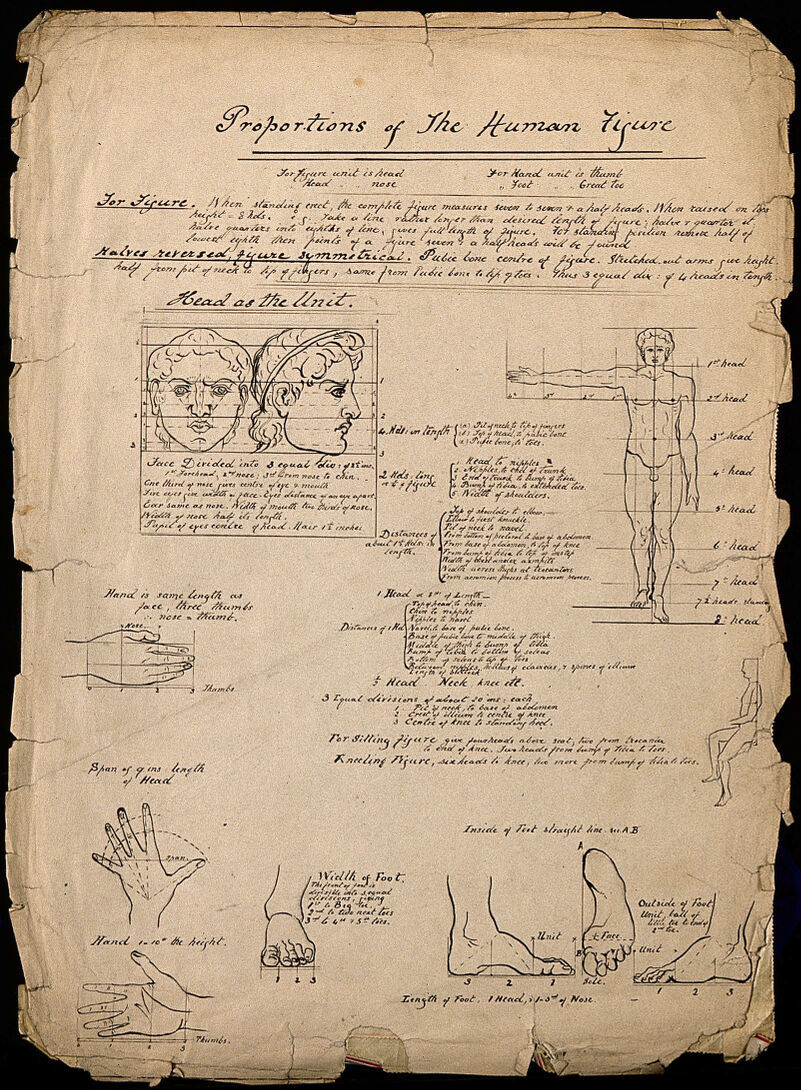 Proportions of The Human Figure
For Figure unit is head
Head " " nose
For Hand unit is thumb
" Foot " " Great toe
For Figure. When standing erect, the complete figure measures seven to seven & a half heads. When raised on toes
height = 8 hds. e.g. Take a line rather longer than desired length of figure; halve & quarter it.
halve quarters into eighths of line, gives full length of figure. For standing position remove half of
lowest eighth then points of a figure seven & a half heads will be found
Halves reversed, figure symmetrical. Pubic bone centre of figure. Stretched out arms give height.
half from pit of neck to tip of fingers, same from Pubic bone to tip of toes. Thus 3 equal div: of 4 heads in length.
Head as the Unit.
1
2
3
Face Divided into 3 equal div:
1st Forehead, 2nd nose; 3rd from nose to chin.
One third of nose gives centre of eye & mouth
Five eyes give width of face. Eyes distance of an eye apart.
Ear same as nose. Width of mouth two thirds of nose.
Width of nose half its length.
Pupil of eyes centre of head. Hair 1½ inches
4. Hds. in length
(a) Pit of neck to tip of fingers
(b) Top of head, to pubic bone
(c) Pubic bone, to toes.
2 Hds. long
or ¼ of figure
1 Head to nipples
2 Nipples to end of trunk
3 End of trunk to bump of tibia
4 Bump of tibia, to extended toes.
5 Width of shoulders.
Distances of
about 1½ Hds: in
length.
Top of shoulder to elbow.
Elbow to first knuckle.
Pit of neck to navel
From bottom of pectoral to base of abdomen.
From base of abdomen, to top of knee
From bump of tibia to top of instep
Width of chest under armpits
Width across thighs at trocanters
From acromion process to acromion process.
1st head
2nd head
3rd head
4th head
5th head
6th head
7th head
7½ heads standing
8th head
Hand is same length as
face, three thumbs
∴ nose = thumb.
Nose.
1 2 3 Thumbs.
1 Head or 8th of Length
Distances of 1 Hd
Top of head to chin.
Chin to nipples
Nipples to navel
Navel to base of pubic bone.
Base of pubic bone to middle of thigh
Middle of thigh to bump of tibia
Bump of tibia to bottom of soleus
Bottom of soleus to tip of toes
½ Head Neck, knee etc.
3 Equal divisions of about 20 ins: each
1. Pit of neck, to base of abdomen
2. Crest of illeum to centre of knee
3 Centre of knee to standing heel.
For Sitting figure give four heads above seat, two from trocanta
to end of knee. Two heads from bump of tibia to toes.
Kneeling Figure, six heads to knee, two more from bump of tibia to toes.
Span of 9 ins: length
of Head
Span.
Hand 1-10th the height.
Thumbs.
Width of Foot.
The front of foot is
divisible into 3 equal
divisions, giving
1st to Big toe.
2nd to two next toes
3rd to 4th & 5th toes.
1 2 3
Inside of Foot straight line A B
A
B
Unit
Face
Sole.
3 2 1
Outside of Foot
Unit, ball of
little toe to end of
2nd toe.
Unit
1 2 3
Length of Foot, 1 Head, & 1-3rd of Nose.